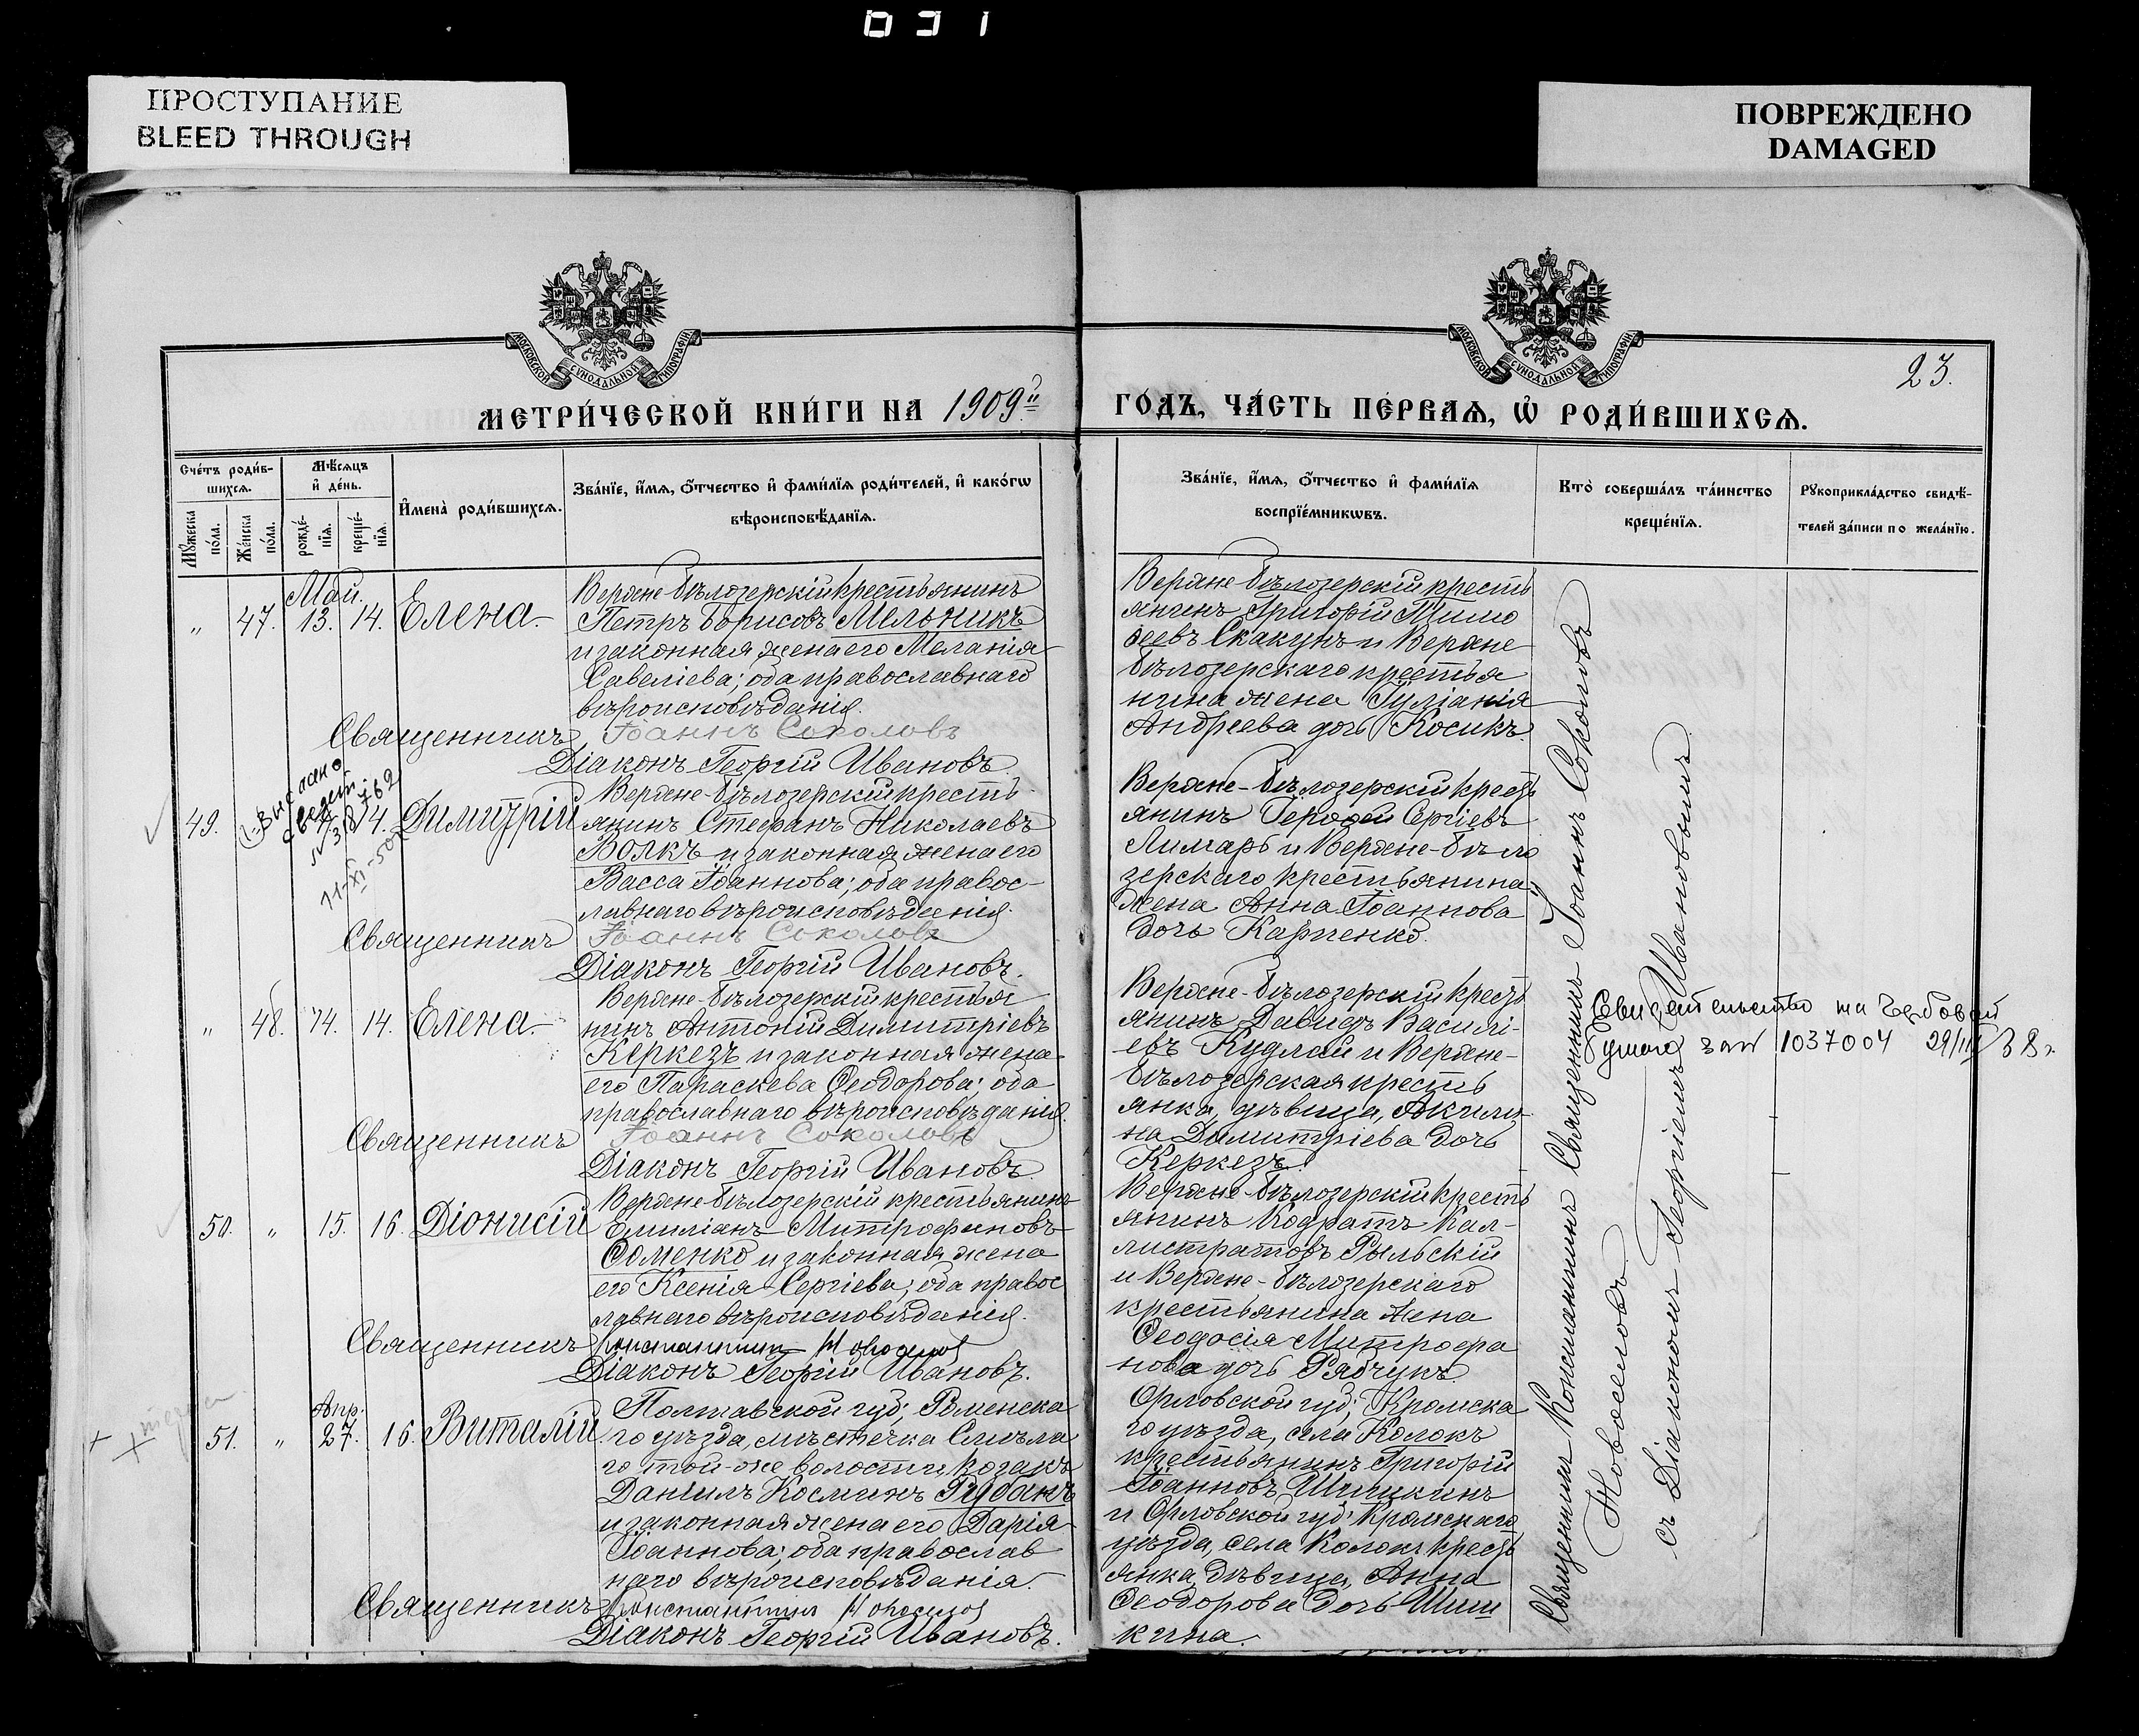 031
ПРОСТУПАНИЕ
BLEED THROUGH
ПОВРЕЖДЕНО
DAMAGED
МОСКОВСКОЙ СѴНОДАЛЬНОЙ ТИПОГРАФІИ
МОСКОВСКОЙ СѴНОДАЛЬНОЙ ТИПОГРАФІИ
23.
МЕТРИ́ЧЕСКОЙ КНИ́ГИ НА 1909й
ГО́ДЪ, ЧА́СТЬ ПЕ́РВАѦ, Ѽ РОДИ́ВШИХСѦ.
Сче́тъ роди́в-
шихсѧ.
Мѣ́сѧцъ
и҆ де́нь.
И҆мена̀ роди́вшихсѧ.
Зва́нїе, и҆́мѧ, ѻ҆́тчество и҆ фами́лїѧ роди́телей, и҆ како́гѡ
вѣроисповѣ́данїѧ.
Мꙋ́жеска по́ла.
Же́нска по́ла.
рожде́-
нїѧ.
креще́-
нїѧ.
Зва́нїе, и҆́мѧ, ѻ҆́тчество и҆ фами́лїѧ
воспрїе́мникѡвъ.
Кто̀ соверша́лъ та́инство
креще́нїѧ.
Рꙋкоприкла́дство свидѣ́-
телей за́писи по жела́нїю.
Май.
" 47. 13. 14. Елена
Верхне-бѣлозерскій крестьянинъ
Петръ Борисовъ Мельникъ
и законная жена его Меланія
Савеліева; оба православнаго
вѣроисповѣданія.
Священникъ Іоаннъ Соколовъ
Діаконъ Георгій Ивановъ.
Верхне-бѣлозерскій кресть
янинъ Григорій Тимо
ѳеевъ Скакунъ и Верхне
бѣлозерскаго крестья
нина жена Іуліанія
Андреева дочь Косикъ.
Выслано
свед
11-XI-50
49. 14. Димитрій
Верхне-бѣлозерскій кресть-
янинъ Стефанъ Николаевъ
Волкъ и законная жена его
Васса Іоаннова; оба правос-
лавнаго вѣроисповѣданія.
Священникъ Іоаннъ Соколовъ
Діаконъ Георгій Ивановъ.
Верхне-бѣлозерскій кресть
янинъ Сергіевъ
Лимарь и Верхне-бѣло
зерскаго крестьянина
жена Анна Іоаннова
дочь Карпенко.
" 48. 14. 14. Елена
Верхне-бѣлозерскій крестья
нинъ Антоній Димитріевъ
Керкезъ и законная жена
его Параскева Ѳеодорова; оба
православнаго вѣроисповѣданія.
Священникъ Іоаннъ Соколовъ
Діаконъ Георгій Ивановъ.
Верхне-бѣлозерскій кресть
янинъ Давидъ Василі-
евъ Кудлай и Верхне-
бѣлозерская кресть
янка, дѣвица, Акили-
на Димитріева дочь
Керкезъ.
50. " 15. 16. Діонисій
Верхне-бѣлозерскій крестьянинъ
Емиліанъ Митрофановъ
Ѳоменко и законная жена
его Ксенія Сергіева; оба правос
лавнаго вѣроисповѣданія.
Священникъ Константинъ Новоселовъ
Діаконъ Георгій Ивановъ.
Верхне-бѣлозерскій кресть
янинъ Кодратъ Кал-
листратовъ Рыльскій
и Верхне-бѣлозерскаго
крестьянина жена
Ѳеодосія Митрофа
нова дочь Рябчукъ.
Апр.
51. " 27. 16. Виталій
Полтавской губ; Роменска
го уѣзда, мѣстечка Смѣла
го той-же волости козакъ
Даніилъ Косминъ Рубанъ
и законная жена его Дарія
Іоаннова; оба православ
наго вѣроисповѣданія.
Священникъ Константинъ Новоселовъ
Діаконъ Георгій Ивановъ.
Орловской губ; Кромска
го уѣзда, села Колокъ
крестьянинъ Григорій
Іоанновъ Шишкинъ
и Орловской губ; Кромскаго
уѣзда, села Колокъ кресть
янка дѣвица, Анна
Ѳеодорова дочь Шиш
кина.
Священникъ Константинъ Священникъ Іоаннъ Соколовъ
Новоселовъ
съ Діакономъ Георгіемъ Ивановымъ
Свидетельство на гербовой
бумаге за № 1037004 29/III 38 г.